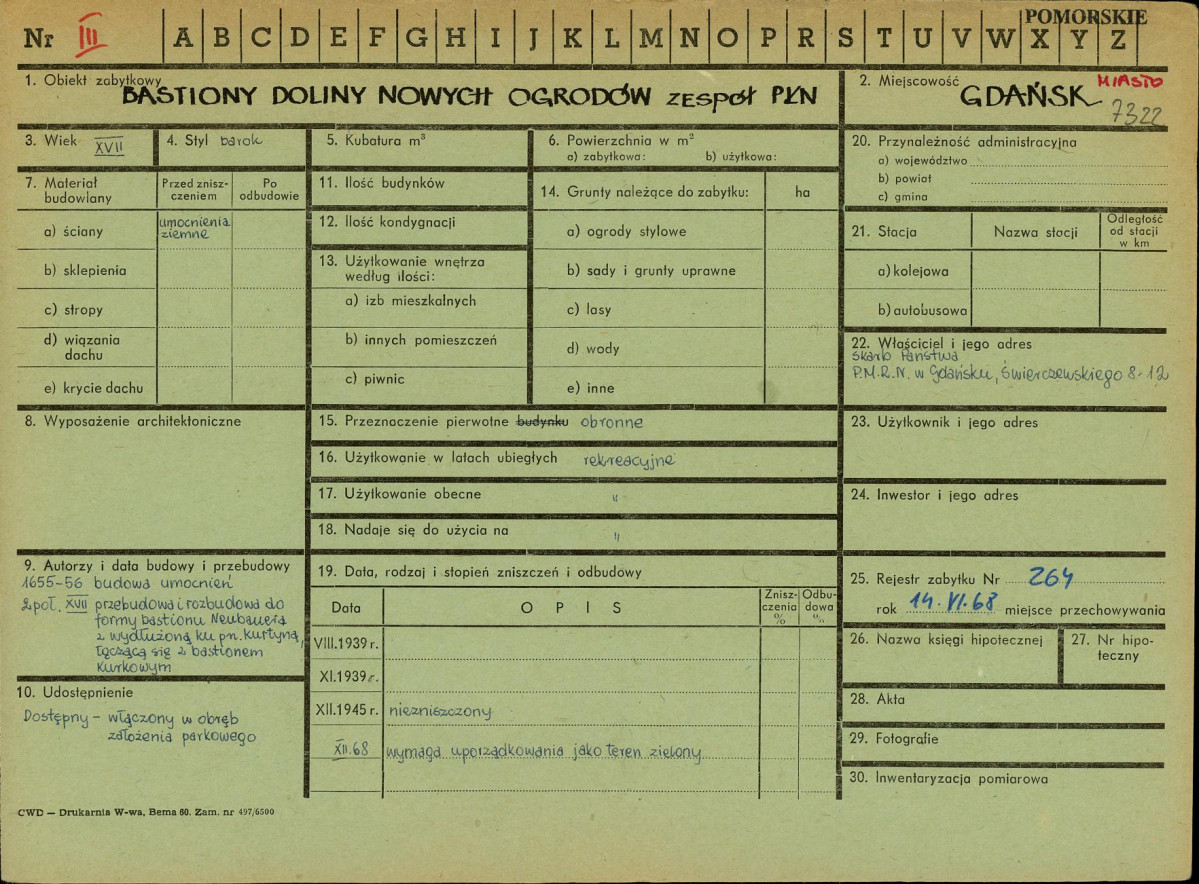 POMORSKIE
Nr III A B C D E F G H I J K L M N O P R S T U V W X Y Z
1. Obiekt zabytkowy
BASTIONY DOLINY NOWYCH OGRODÓW ZESPÓŁ PŁN
2. Miejscowość MIASTO
GDAŃSK
7322
3. Wiek XVII
4. Styl barok
5. Kubatura m³
6. Powierzchnia w m²
a) zabytkowa: b) użytkowa:
7. Materiał
budowlany
Przed znisz-
czeniem
Po
odbudowie
a) ściany
umocnienia
ziemne
b) sklepienia
c) stropy
d) wiązania
dachu
e) krycie dachu
8. Wyposażenie architektoniczne
9. Autorzy i data budowy i przebudowy
1655-56 budowa umocnień
2 poł. XVII przebudowa i rozbudowa do
formy bastionu Neubauera
z wydłużoną ku pn. Kurtyną,
łączącą się z bastionem
Kurkowym
10. Udostępnienie
Dostępny - włączony w obręb
założenia parkowego
CWD — Drukarnia W-wa, Bema 60. Zam. nr 497/6500
11. Ilość budynków
12. Ilość kondygnacji
13. Użytkowanie wnętrza
według ilości:
a) izb mieszkalnych
b) innych pomieszczeń
c) piwnic
14. Grunty należące do zabytku:
ha
a) ogrody stylowe
b) sady i grunty uprawne
c) lasy
d) wody
e) inne
15. Przeznaczenie pierwotne budynku obronne
16. Użytkowanie w latach ubiegłych rekreacyjne
17. Użytkowanie obecne "
18. Nadaje się do użycia na "
19. Data, rodzaj i stopień zniszczeń i odbudowy
Data
OPIS
Znisz-
czenia
%
Odbu-
dowa
%
VIII.1939 r.
XI.1939 r.
XII.1945 r. niezniszczony
XII.68 wymaga uporządkowania jako teren zielony
20. Przynależność administracyjna
a) województwo
b) powiat
c) gmina
21. Stacja
Nazwa stacji
Odległość
od stacji
w km
a) kolejowa
b) autobusowa
22. Właściciel i jego adres
Skarb Państwa
P.M.R.N. w Gdańsku, Świerczewskiego 8-12
23. Użytkownik i jego adres
24. Inwestor i jego adres
25. Rejestr zabytku Nr 264
rok 14.VI.68 miejsce przechowywania
26. Nazwa księgi hipotecznej
27. Nr hipo-
teczny
28. Akta
29. Fotografie
30. Inwentaryzacja pomiarowa